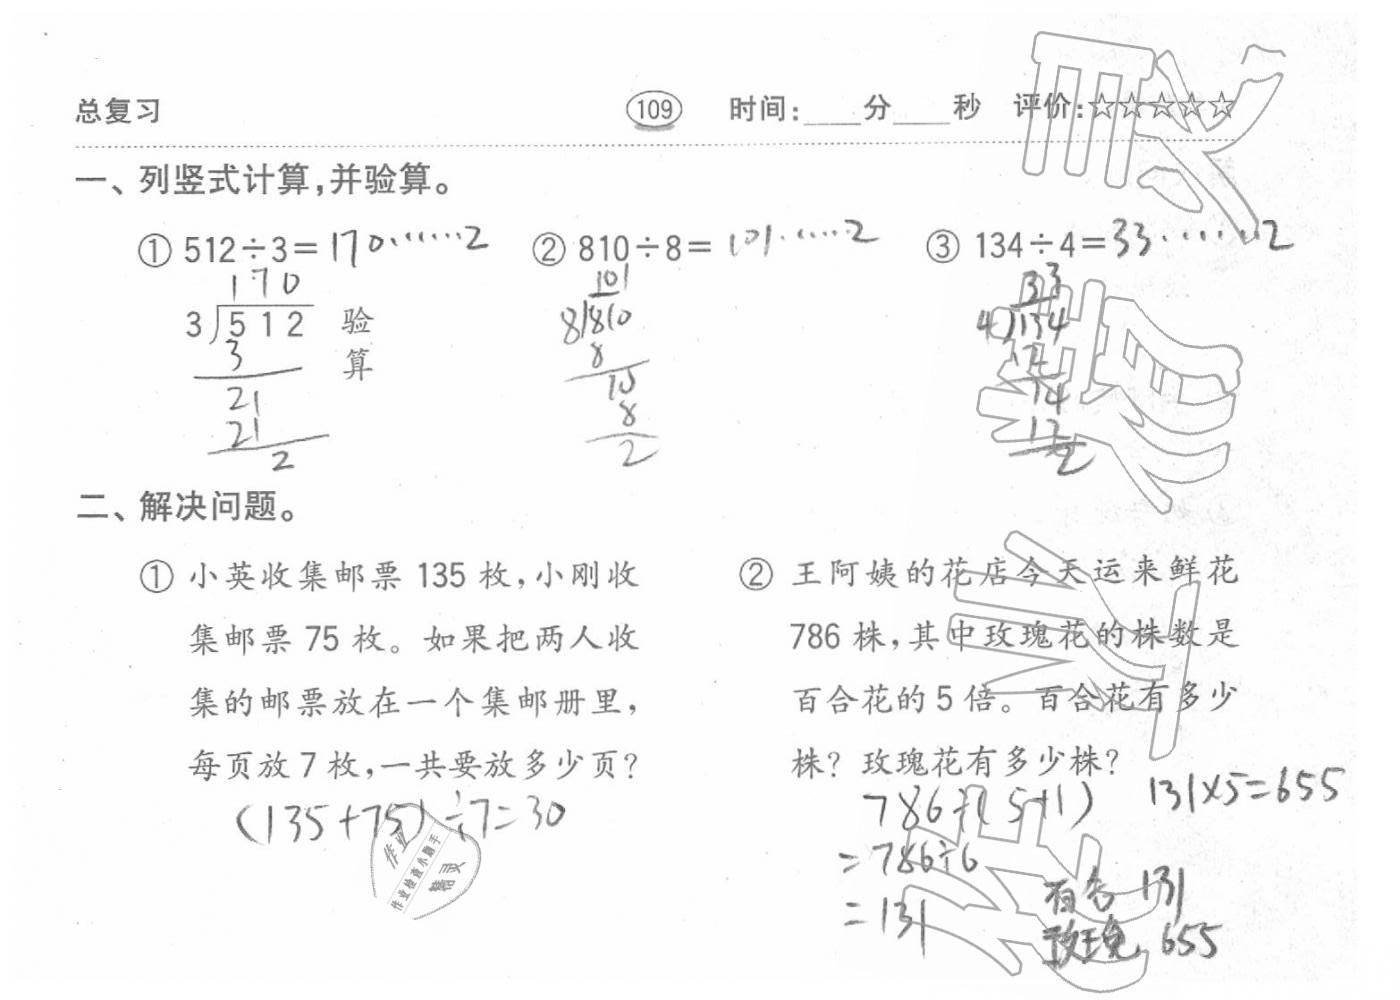 总复习 109 时间:____分____秒 评价:☆☆☆☆☆
一、列竖式计算,并验算。
① 512÷3=170……2 ② 810÷8=101……2 ③ 134÷4=33……2
170
3)512 验算
3
21
21
2
101
8)810
8
10
8
2
33
4)134
12
14
12
2
二、解决问题。
① 小英收集邮票 135 枚,小刚收
集邮票 75 枚。如果把两人收
集的邮票放在一个集邮册里,
每页放 7 枚,一共要放多少页?
(135+75)÷7=30
作业
作业检查小助手
精灵
② 王阿姨的花店今天运来鲜花
786 株,其中玫瑰花的株数是
百合花的 5 倍。百合花有多少
株? 玫瑰花有多少株?
786÷(5+1) 131×5=655
=786÷6
=131
百合 131
玫瑰 655